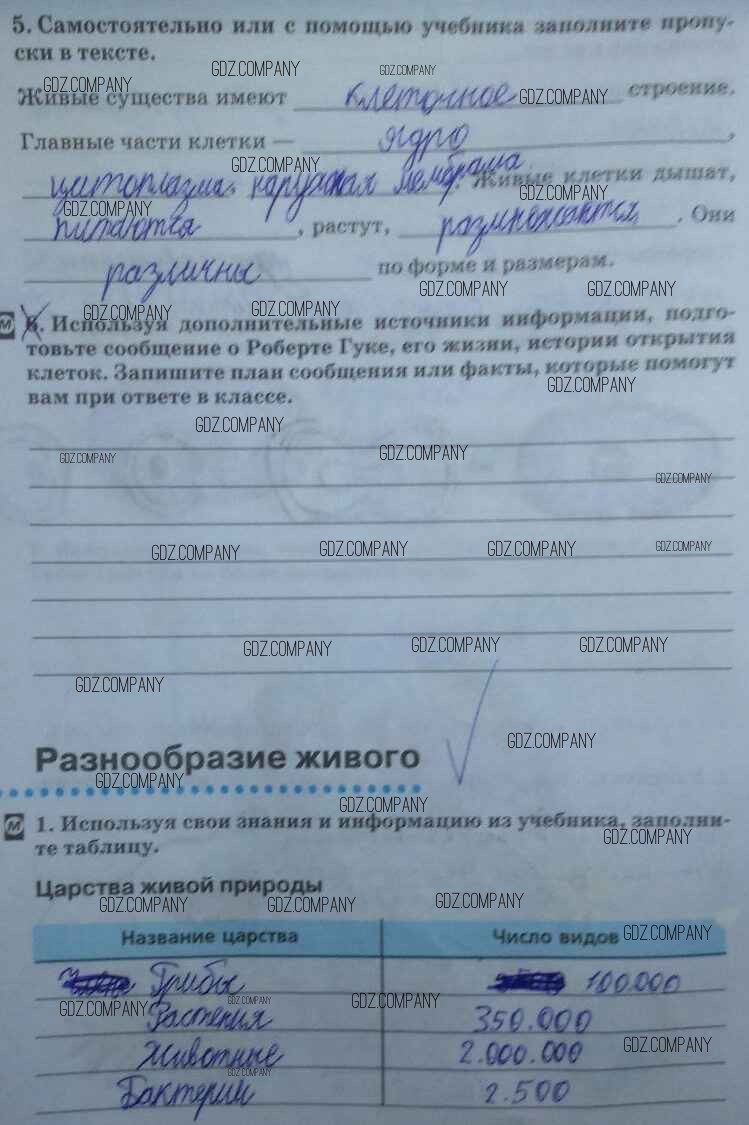 5. Самостоятельно или с помощью учебника заполните пропу-
ски в тексте.
GDZ.COMPANY GDZ.COMPANY GDZ.COMPANY
Живые существа имеют клеточное строение.
GDZ.COMPANY
Главные части клетки — ядро,
GDZ.COMPANY
цитоплазма, наружная мембрана. Живые клетки дышат,
GDZ.COMPANY GDZ.COMPANY
питаются, растут, размножаются. Они
различны по форме и размерам.
GDZ.COMPANY GDZ.COMPANY
GDZ.COMPANY GDZ.COMPANY
М 6. Используя дополнительные источники информации, подго-
товьте сообщение о Роберте Гуке, его жизни, истории открытия
клеток. Запишите план сообщения или факты, которые помогут
GDZ.COMPANY
вам при ответе в классе.
GDZ.COMPANY
GDZ.COMPANY GDZ.COMPANY
GDZ.COMPANY
GDZ.COMPANY GDZ.COMPANY GDZ.COMPANY GDZ.COMPANY
GDZ.COMPANY GDZ.COMPANY GDZ.COMPANY
GDZ.COMPANY
GDZ.COMPANY
Разнообразие живого
GDZ.COMPANY
GDZ.COMPANY
М 1. Используя свои знания и информацию из учебника, заполни-
GDZ.COMPANY
те таблицу.
Царства живой природы
GDZ.COMPANY GDZ.COMPANY GDZ.COMPANY
Название царства Число видов GDZ.COMPANY
Грибы 100.000
GDZ.COMPANY GDZ.COMPANY GDZ.COMPANY
Растения 350.000
Животные 2.000.000 GDZ.COMPANY
GDZ.COMPANY
Бактерии 2.500